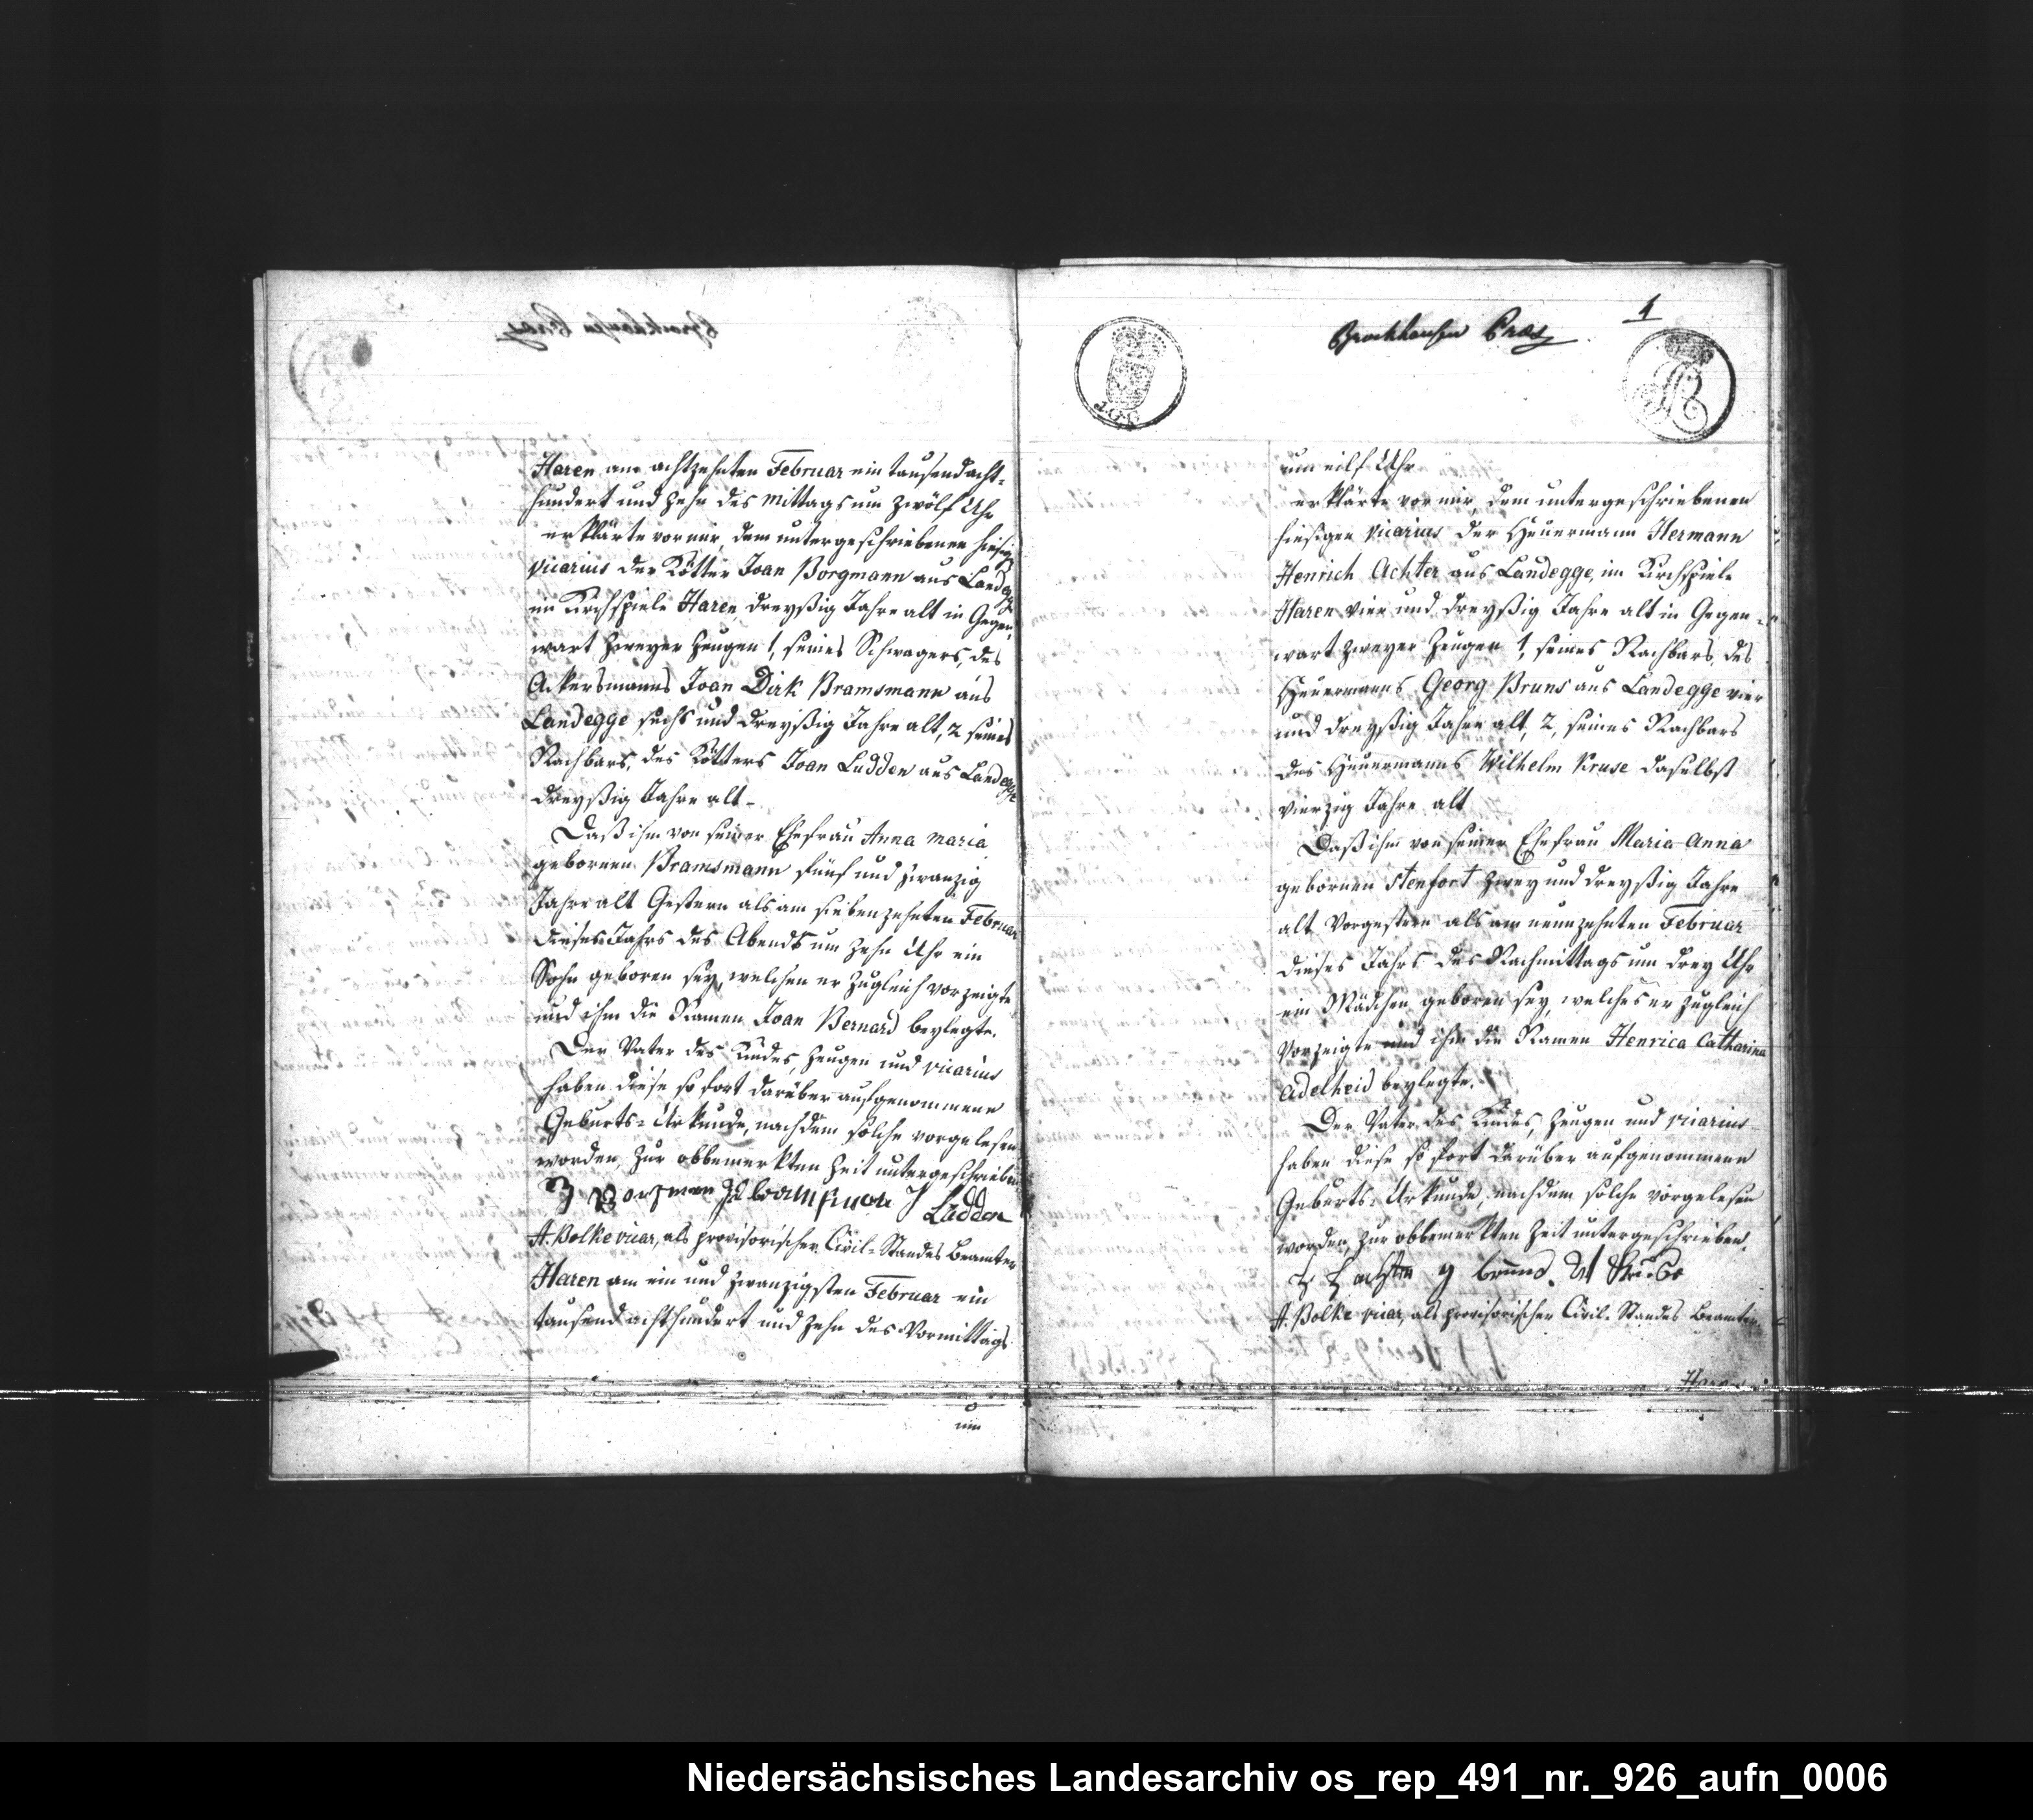 Haren am achtzehnten Februar ein tausend acht-
hundert und zehn des Mittags um zwölf Uhr
erklärte vor mir, dem untergeschriebenen hiesig
vicarius der Kötter Joan Borgmann aus Landegge
im Kirchspiele Haren dreyßig Jahre alt in Gegen-
wart zweyer Zeugen 1, seines Schwagers, des
Ackersmanns Joan Dirk Bramsmann aus
Landegge sechs und dreyßig Jahre alt, 2 seines
Nachbars, des Kötters Joan Ludden aus Landegge
dreyßig Jahre alt-
Daß ihm von seiner Ehefrau Anna Maria
gebornen Bramsmann fünf und zwanzig
Jahre alt Gestern als am siebenzehnten Februar
dieses Jahrs des Abends um zehn Uhr ein
Sohn geboren sey, welchen er zugleich vorzeigte
und ihm die Namen Joan Bernard beylegte.
Der Vater des Kindes, Zeugen und vicarius
haben diese so fort darüber aufgenommene
Geburts-Urkunde, nachdem solche vorgelesen
worden, zur obbemerkten Zeit untergeschrieben
J Borgman J Ludden
H. Bolke vicar, als provisorischer Civil-Standes Beamter
Haren am ein und zwanzigsten Februar ein
tausend achthundert und zehn des Vormittags
um
1
Brockhausen
100
um eilf Uhr
erklärte vor mir, dem untergeschriebenen
hiesigen vicarius der Heuermann Hermann
Henrich Achter aus Landegge, im Kirchspiele
Haren vier und dreyßig Jahre alt in Gegen-
wart zweyer Zeugen 1, seines Nachbars, des
Heuermanns Georg Bruns aus Landegge vier
und dreyßig Jahre alt, 2, seines Nachbars
des Heuermanns Wilhelm Kruse daselbst
vierzig Jahre alt
Daß ihm von seiner Ehefrau Maria Anna
gebornen Stenfort zwey und dreyßig Jahre
alt Vorgestern als am neunzehnten Februar
dieses Jahrs des Nachmittags um drey Uhr
ein Mädchen geboren sey, welches er zugleich
vorzeigte und ihm die Namen Henrica Catharina
Adelheid beylegte.
Der Vater des Kindes, Zeugen und vicarius
haben diese so fort darüber aufgenommene
Geburts-Urkunde, nachdem solche vorgelesen
worden, zur obbemerkten Zeit untergeschrieben.
H H achter g bruns. W Kruse
H. Bolke vicar, als provisorischer Civil-Standes Beamter.
Haren
Niedersächsisches Landesarchiv os_rep_491_nr._926_aufn_0006